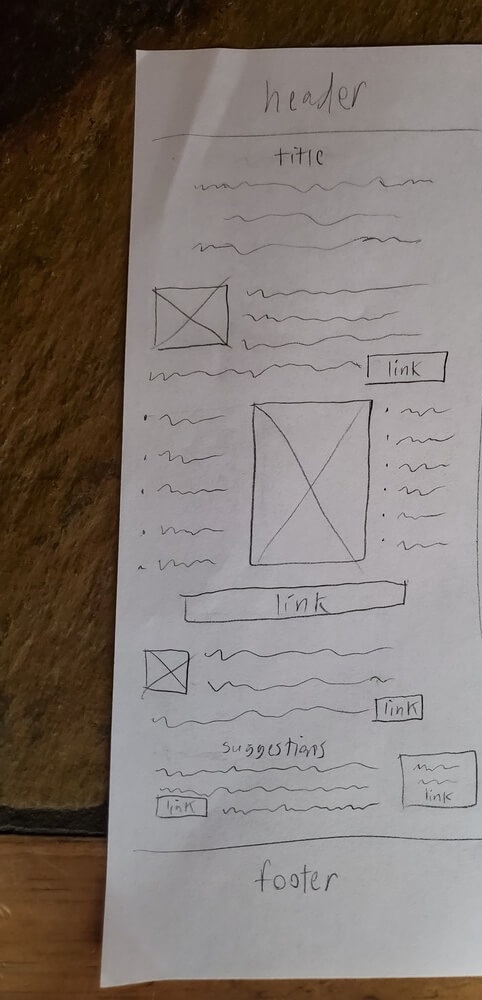 header
title
link
link
link
suggestions
link
link
footer